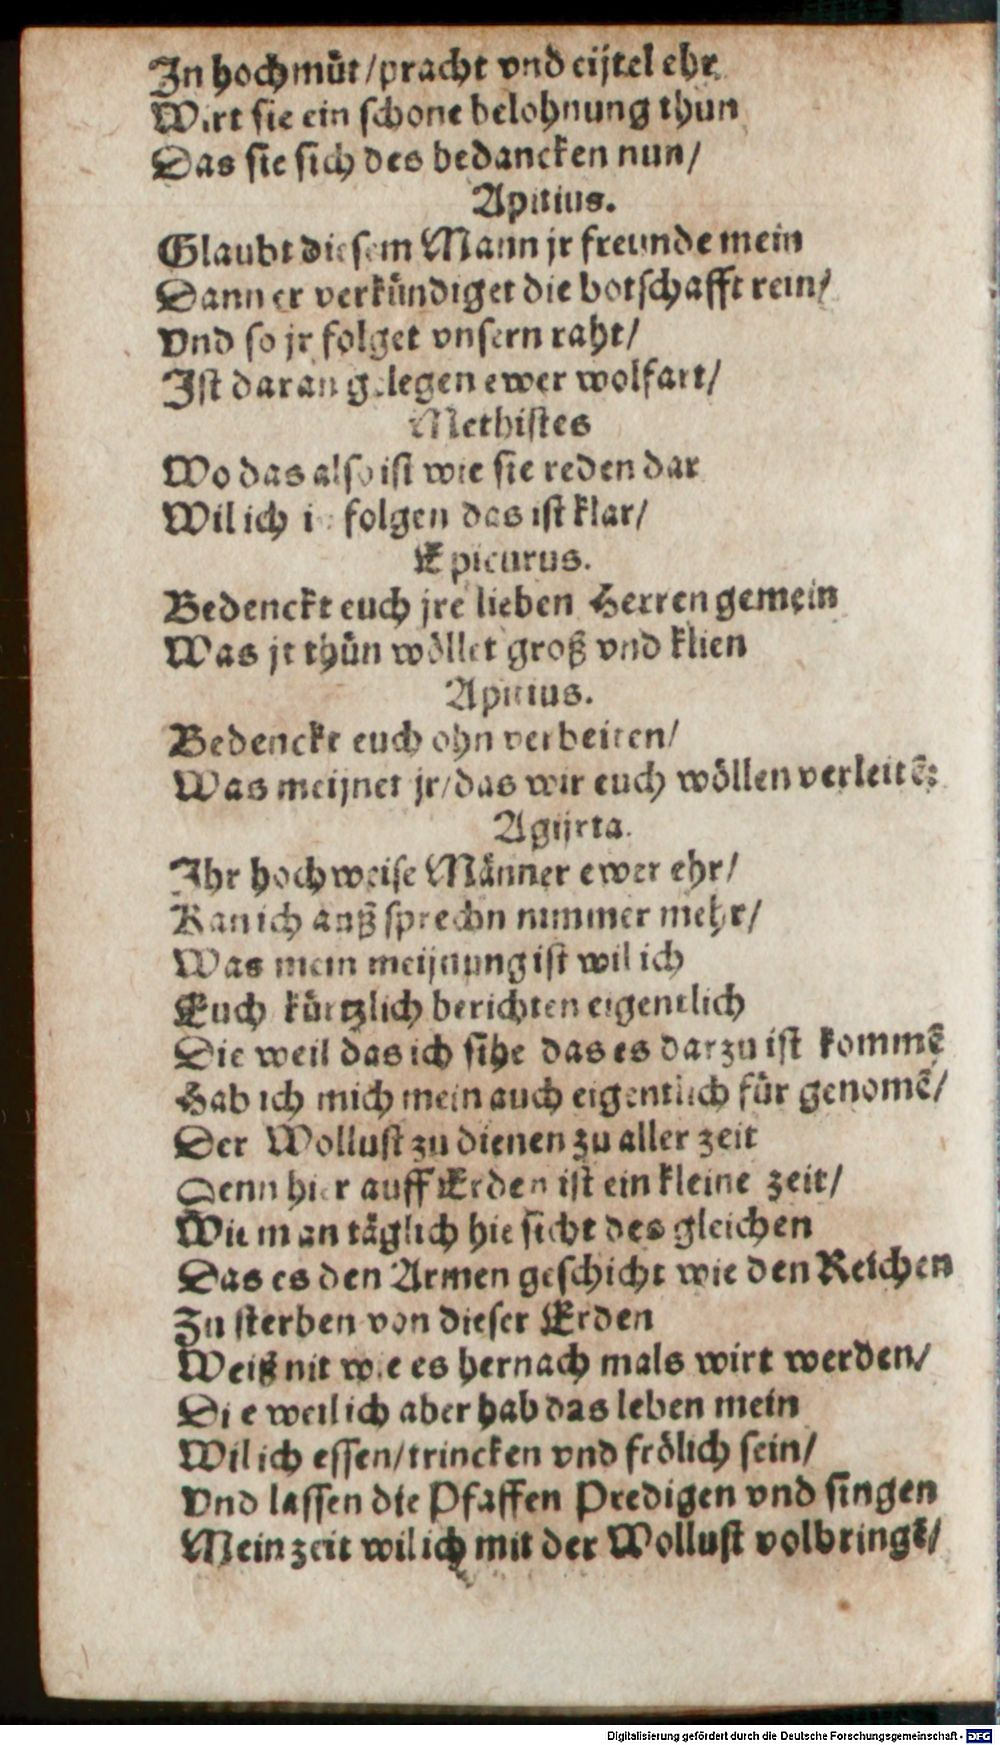 Jn hochmůt/pracht vnd eijtel ehr
Wirt sie ein schone belohnung thun
Das sie sich des bedancken nun/
Apitius.
Glaubt diesem Mann jr freunde mein
Dann er verkündiget die botschafft rein/
Vnd so jr folget vnsern raht/
Jst daran gelegen ewer wolfart/
Methistes
Wo das also ist wie sie reden dar
Wil ich folgen das ist klar/
Epicurus.
Bedenckt euch jre lieben Herren gemein
Was jr thůn wöllet groß vnd klien
Apitius.
Bedenckt euch ohn verbeiten/
Was meijnet jr/das wir euch wöllen verleitē:
Agijrta.
Jhr hochweise Männer ewer ehr/
Kan ich auß sprechn nimmer mehr/
Was mein meijnung ist wil ich
Euch kürtzlich berichten eigentlich
Die weil das ich sihe das es darzu ist kommē
Hab ich mich mein auch eigentlich für genomē/
Der Wollust zu dienen zu aller zeit
Denn hier auff Erden ist ein kleine zeit/
Wie man täglich hie sicht des gleichen
Das es den Armen geschicht wie den Reichen
Zu sterben von dieser Erden
Weiß nit wie es hernach mals wirt werden/
Die weil ich aber hab das leben mein
Wil ich essen/trincken vnd frölich sein/
Vnd lassen die Pfaffen Predigen vnd singen
Mein zeit wil ich mit der Wollust volbringē/
Digitalisierung gefördert durch die Deutsche Forschungsgemeinschaft - DFG